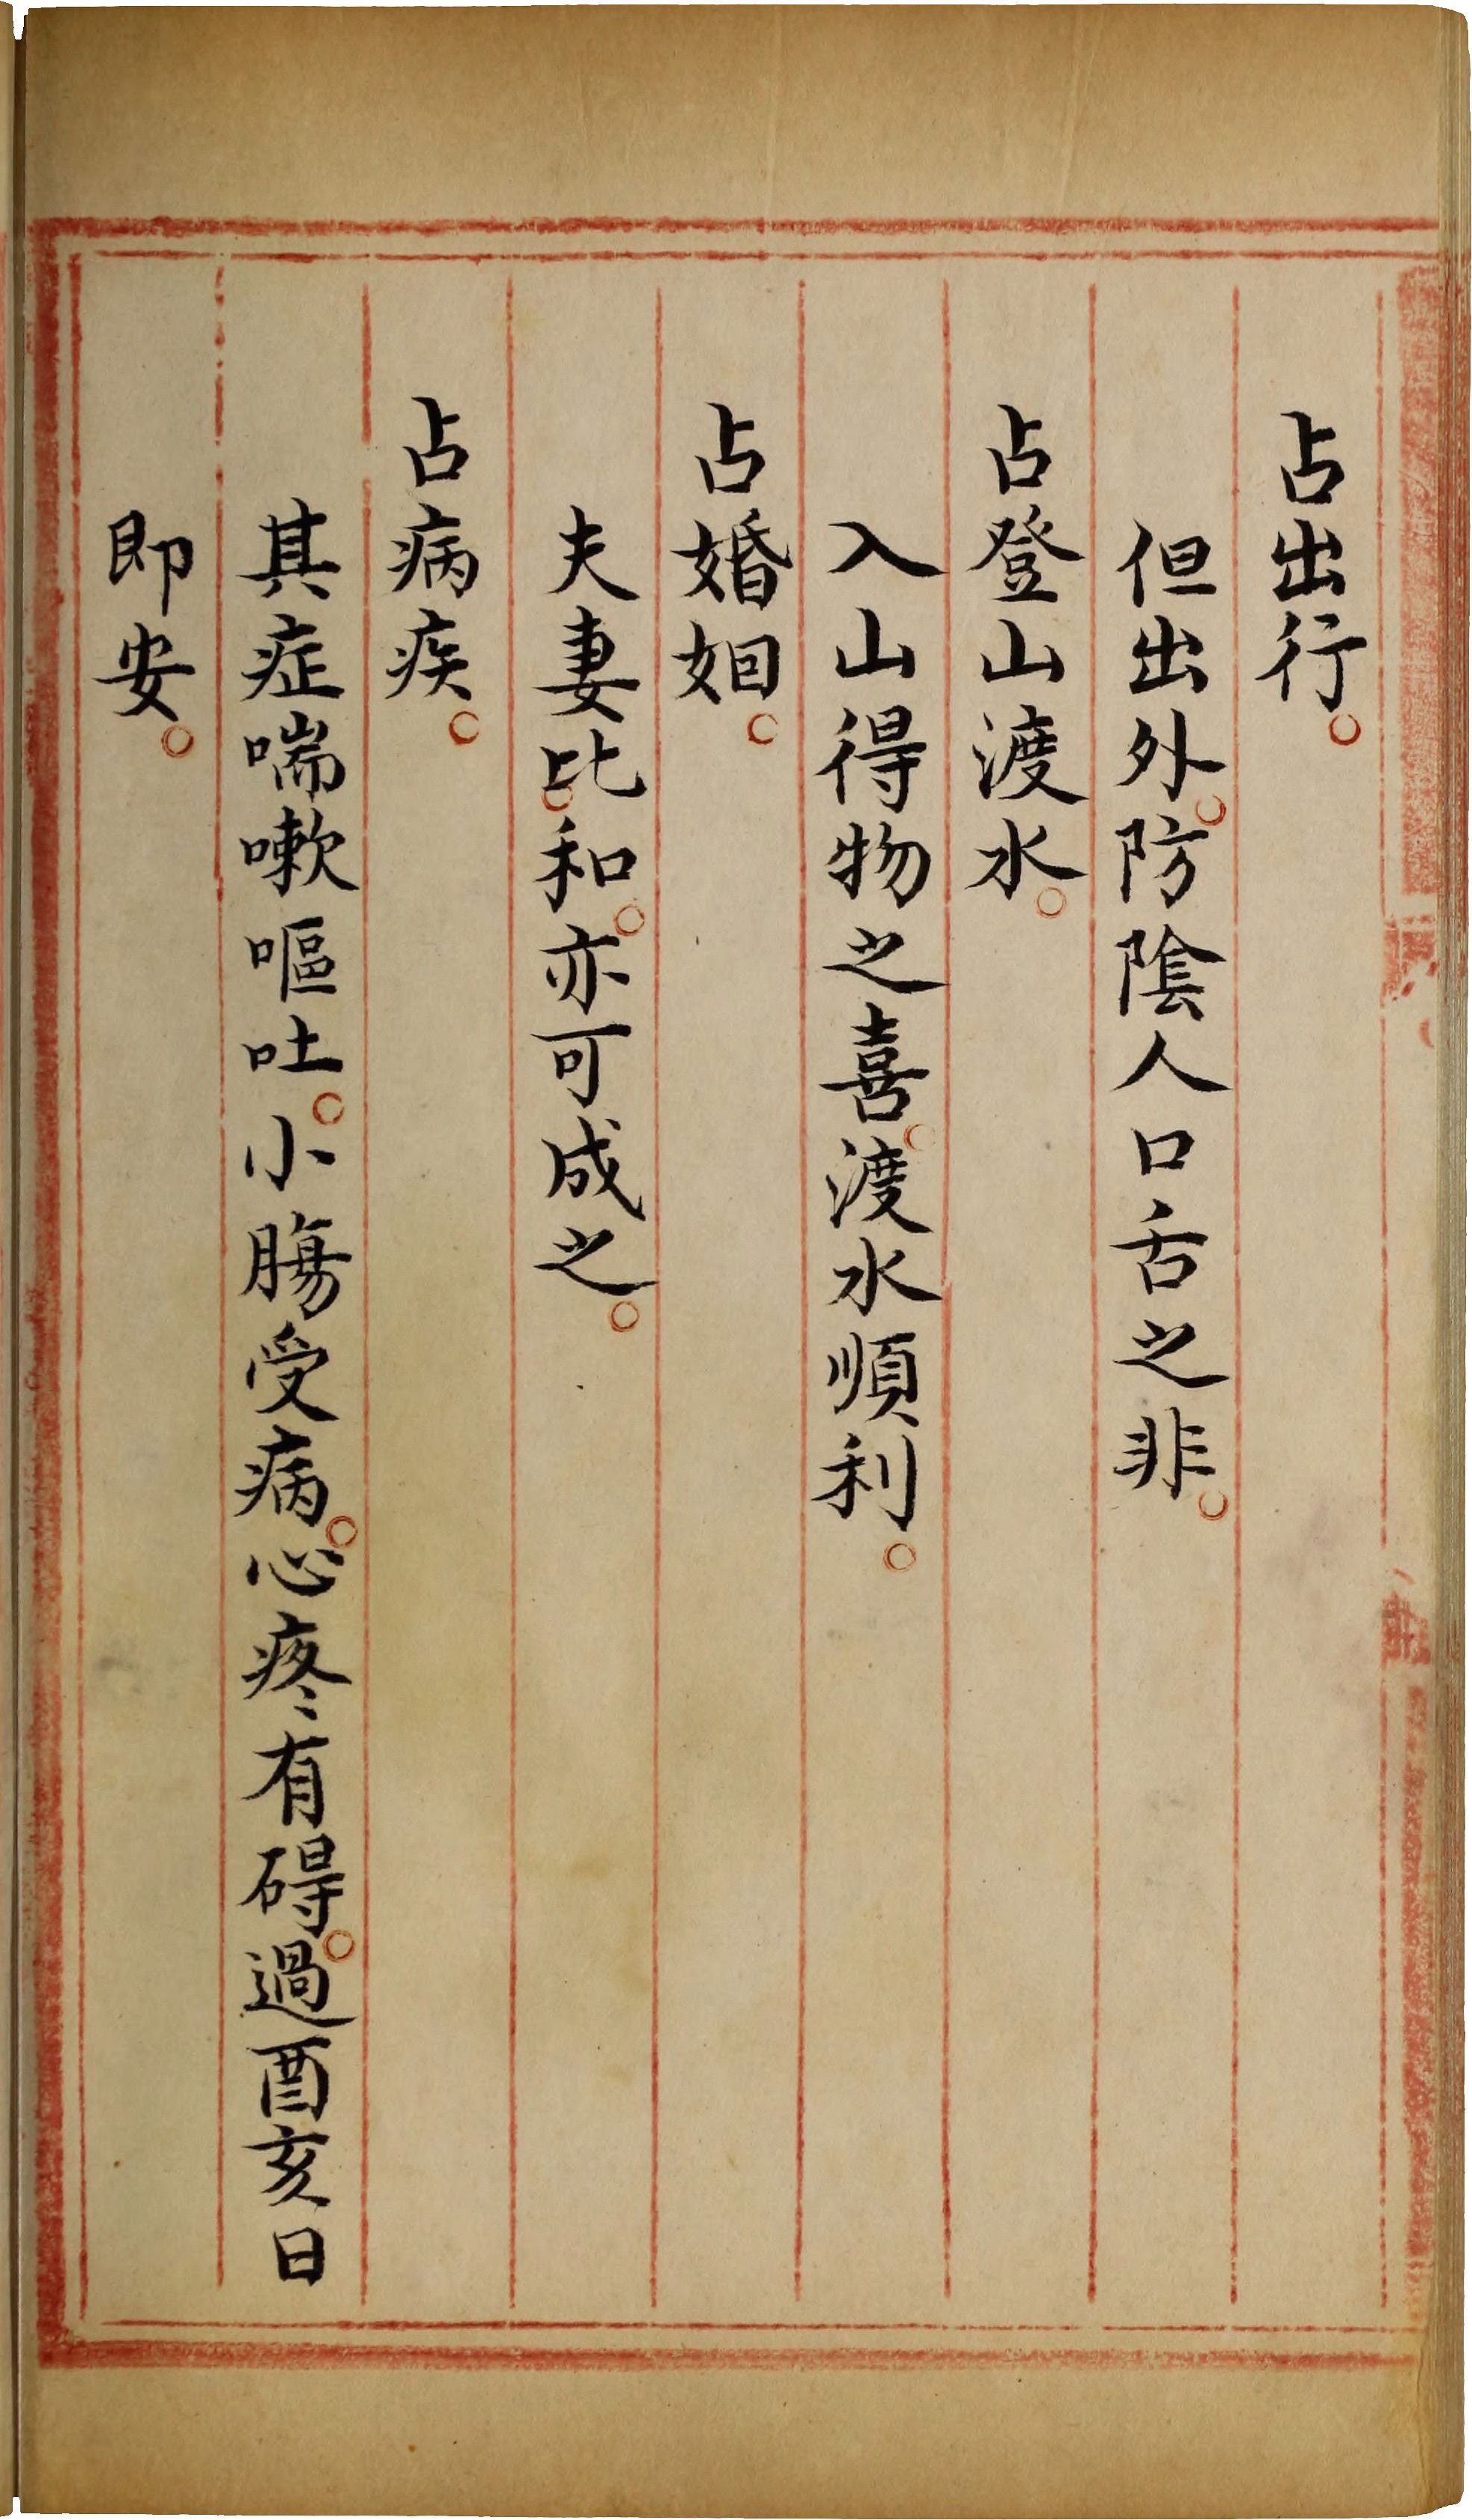 占出行。
但出外。防陰人口舌之非。
占登山渡水。
入山得物之喜。渡水順利。
占婚姻。
夫妻比和。亦可成之。
占病疾。
其症喘嗽嘔吐。小腸受病。心疼有碍。過酉亥日
即安。